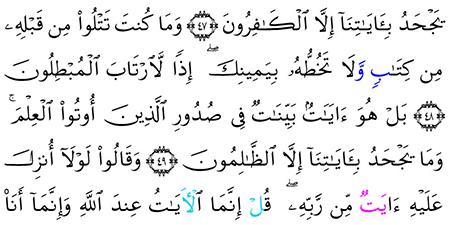 يَجْحَدُ بِـَٔايَـٰتِنَآ إِلَّا ٱلْكَـٰفِرُونَ ﴿٤٧﴾ وَمَا كُنتَ تَتْلُوا۟ مِن قَبْلِهِۦ
مِن كِتَـٰبٍ وَلَا تَخُطُّهُۥ بِيَمِينِكَ ۖ إِذًا لَّٱرْتَابَ ٱلْمُبْطِلُونَ
﴿٤٨﴾ بَلْ هُوَ ءَايَـٰتٌۢ بَيِّنَـٰتٌ فِى صُدُورِ ٱلَّذِينَ أُوتُوا۟ ٱلْعِلْمَ ۚ
وَمَا يَجْحَدُ بِـَٔايَـٰتِنَآ إِلَّا ٱلظَّـٰلِمُونَ ﴿٤٩﴾ وَقَالُوا۟ لَوْلَآ أُنزِلَ
عَلَيْهِ ءَايَـٰتٌ مِّن رَّبِّهِۦ ۖ قُلْ إِنَّمَا ٱلْـَٔايَـٰتُ عِندَ ٱللَّهِ وَإِنَّمَآ أَنَا۠